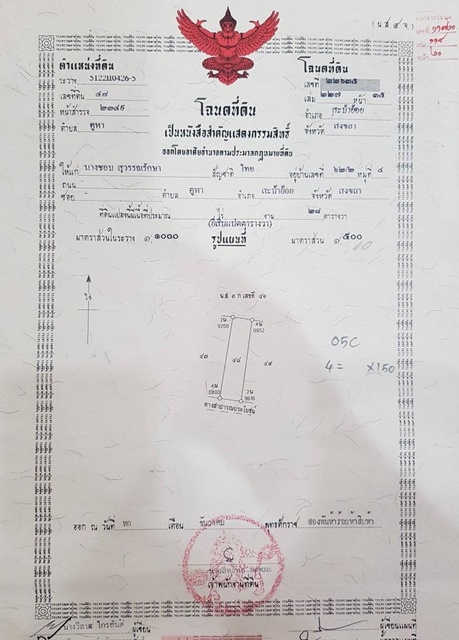 (น.ส.๔ จ)
ตำแหน่งที่ดิน
ระวาง 5122II0426-5
เลขที่ดิน ๔๘
หน้าสำรวจ
ตำบล คูหา
โฉนดที่ดิน
เลขที่ ๒๒๖๒๕
เล่ม ๒๒๗ หน้า ๒๕
อำเภอ สะบ้าย้อย
จังหวัด สงขลา
โฉนดที่ดิน
เป็นหนังสือสำคัญแสดงกรรมสิทธิ์
ออกโดยอาศัยอำนาจตามประมวลกฎหมายที่ดิน
ให้แก่ นางชอบ สุวรรณรักษา สัญชาติ ไทย อยู่บ้านเลขที่ ๖๒/๒ หมู่ที่ ๔
ถนน
ซอย - ตำบล คูหา อำเภอ สะบ้าย้อย จังหวัด สงขลา
ที่ดินแปลงนี้เนื้อที่ประมาณ - ไร่ - งาน ๒๘ ตารางวา
(ยี่สิบแปดตารางวา)
มาตราส่วนในระวาง ๑:๑๐๐๐ รูปแผนที่ มาตราส่วน ๑:๕๐๐
น.ส. ๓ ก เลขที่ ๔๑
2น
9200
4น
0952
๔๗ ๔๘ ๔๙
05C
4= X150
4น
0800
2น
9616
ทางสาธารณประโยชน์
ออก ณ วันที่ หก เดือน ธันวาคม พุทธศักราช สองพันห้าร้อยห้าสิบห้า
เจ้าพนักงานที่ดิน
ผู้เขียน
ผู้เขียนแผนที่